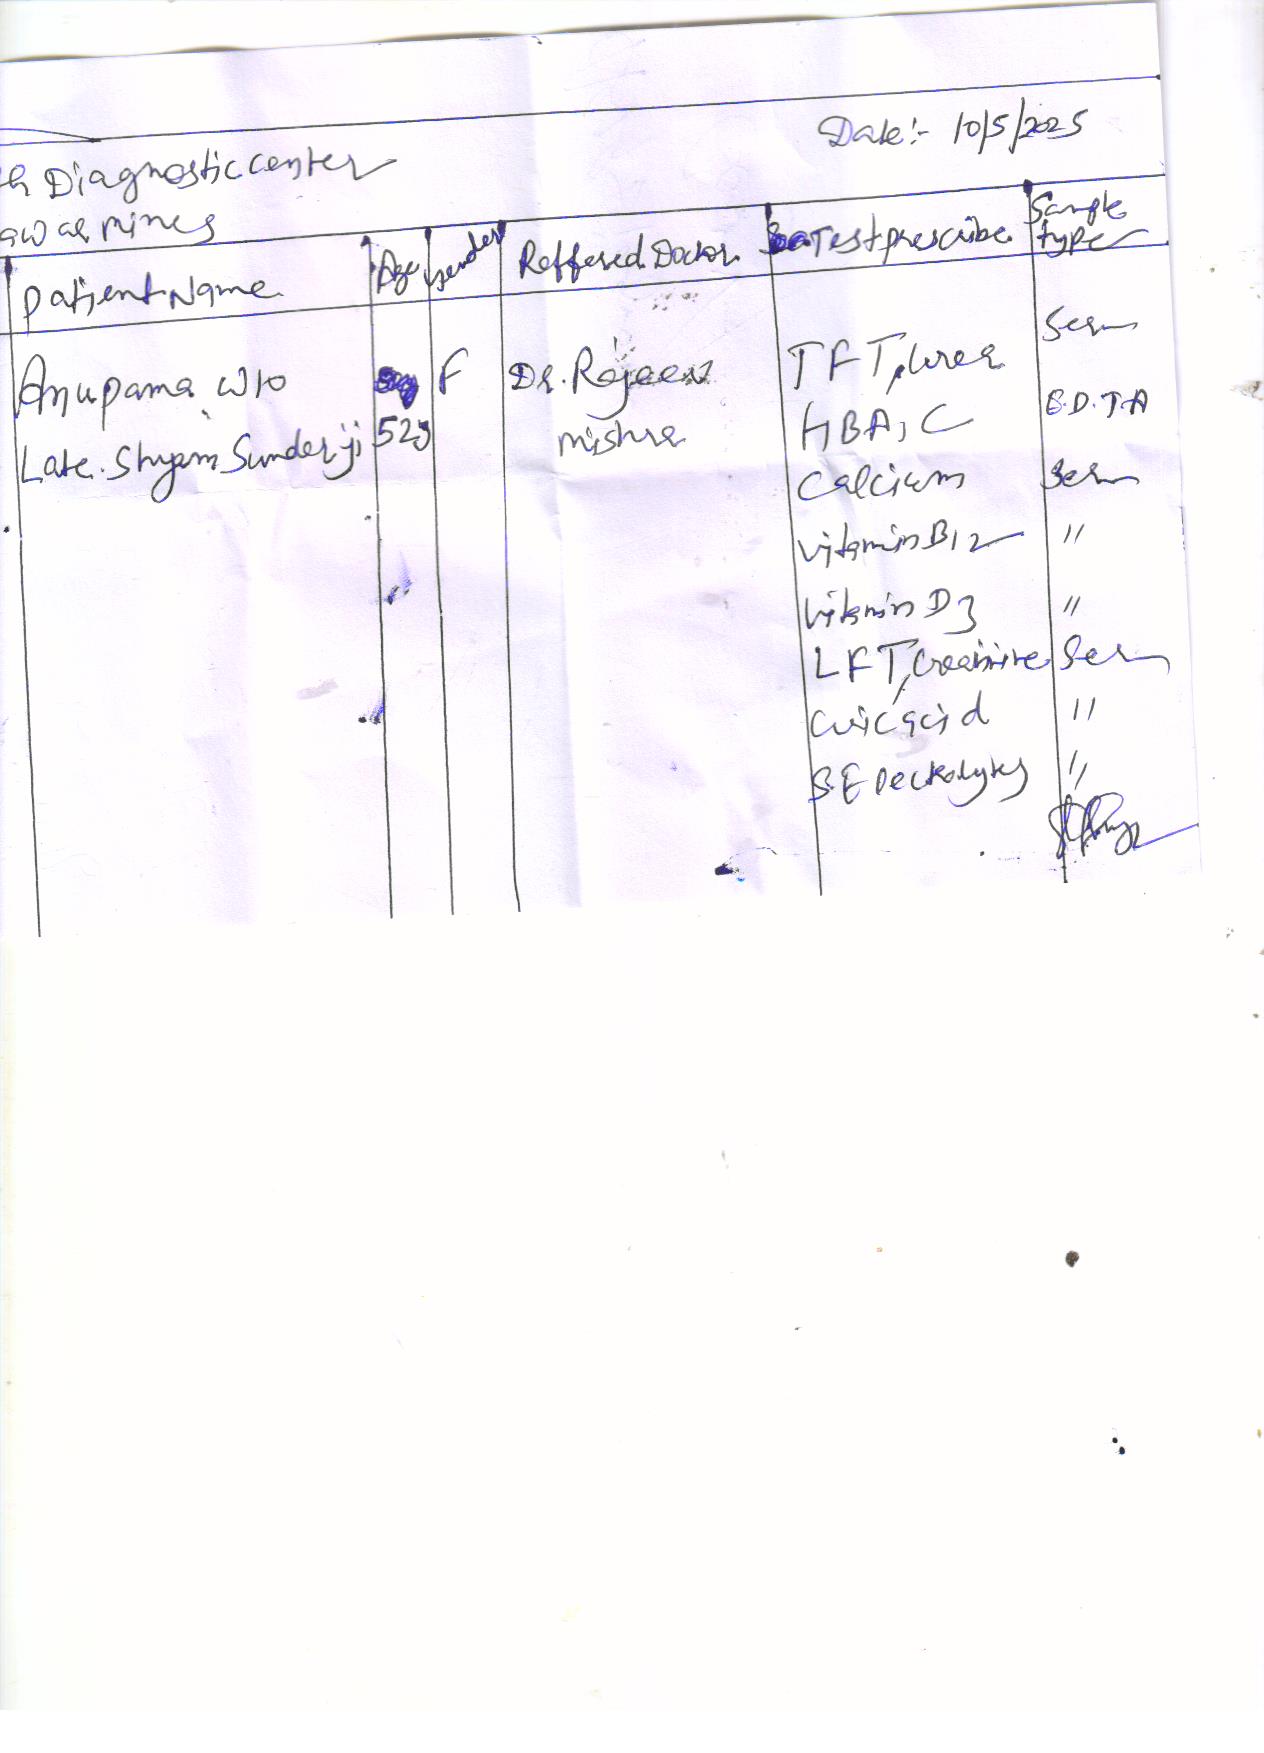 Date:- 10/5/2025
th Diagnostic center
awar mines
Patient Name Age Gender Reffered Doctor Test prescribe Sample type
Serum
Anupama W/o F Dr. Rajeev TFT, Urea
52y mishra HBA1C E.D.T.A
Late. Shyam Sunder ji
Calcium Serum
Vitamin B12 "
Vitamin D3 "
LFT, Creatinine Serum
Uric acid "
S. Electrolytes "